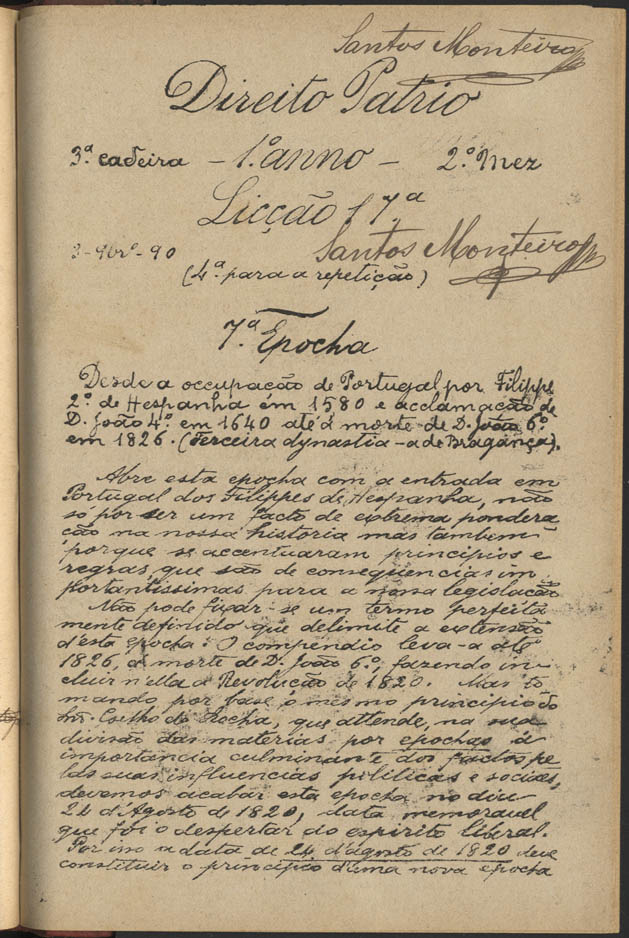 Santos Monteiro
Direito Patrio
3.ª cadeira - 1.º anno - 2.º Mez
Licção 17.ª
Santos Monteiro
3-9br.º-90
(4.ª para a repetição)
7.ª Epocha
Desde a occupação de Portugal por Filippe
2.º de Hespanha em 1580 e acclamação de
D. João 4.º em 1640 até á morte de D. João 6.º
em 1826. (Terceira dynastia - a de Bragança).
Abre esta epocha com a entrada em
Portugal dos Filippes de Hespanha, não
só por ser um facto de extrema pondera
ção na nossa historia mas tambem
porque se accentuaram principios e
regras, que são de consequencias im
portantissimas para a nossa legislação
Não pode fixar-se um termo perfeita
mente definido que delimite a extensão
d'esta epocha. O compendio leva-a até
1826, á morte de D. João 6.º, fazendo in-
cluir n'ella a Revolução de 1820. Mas to
mando por base o mesmo principio do
Snr. Coelho da Rocha, que attende, na sua
divisão das materias por epochas á
importancia culminante dos factos pe
las suas influencias politicas e sociaes,
devemos acabar esta epocha no dia
24 d'Agosto de 1820, data memoravel
que foi o despertar do espirito liberal.
Por isso a data de 24 d'agosto de 1820 deve
constituir o principio d'uma nova epocha